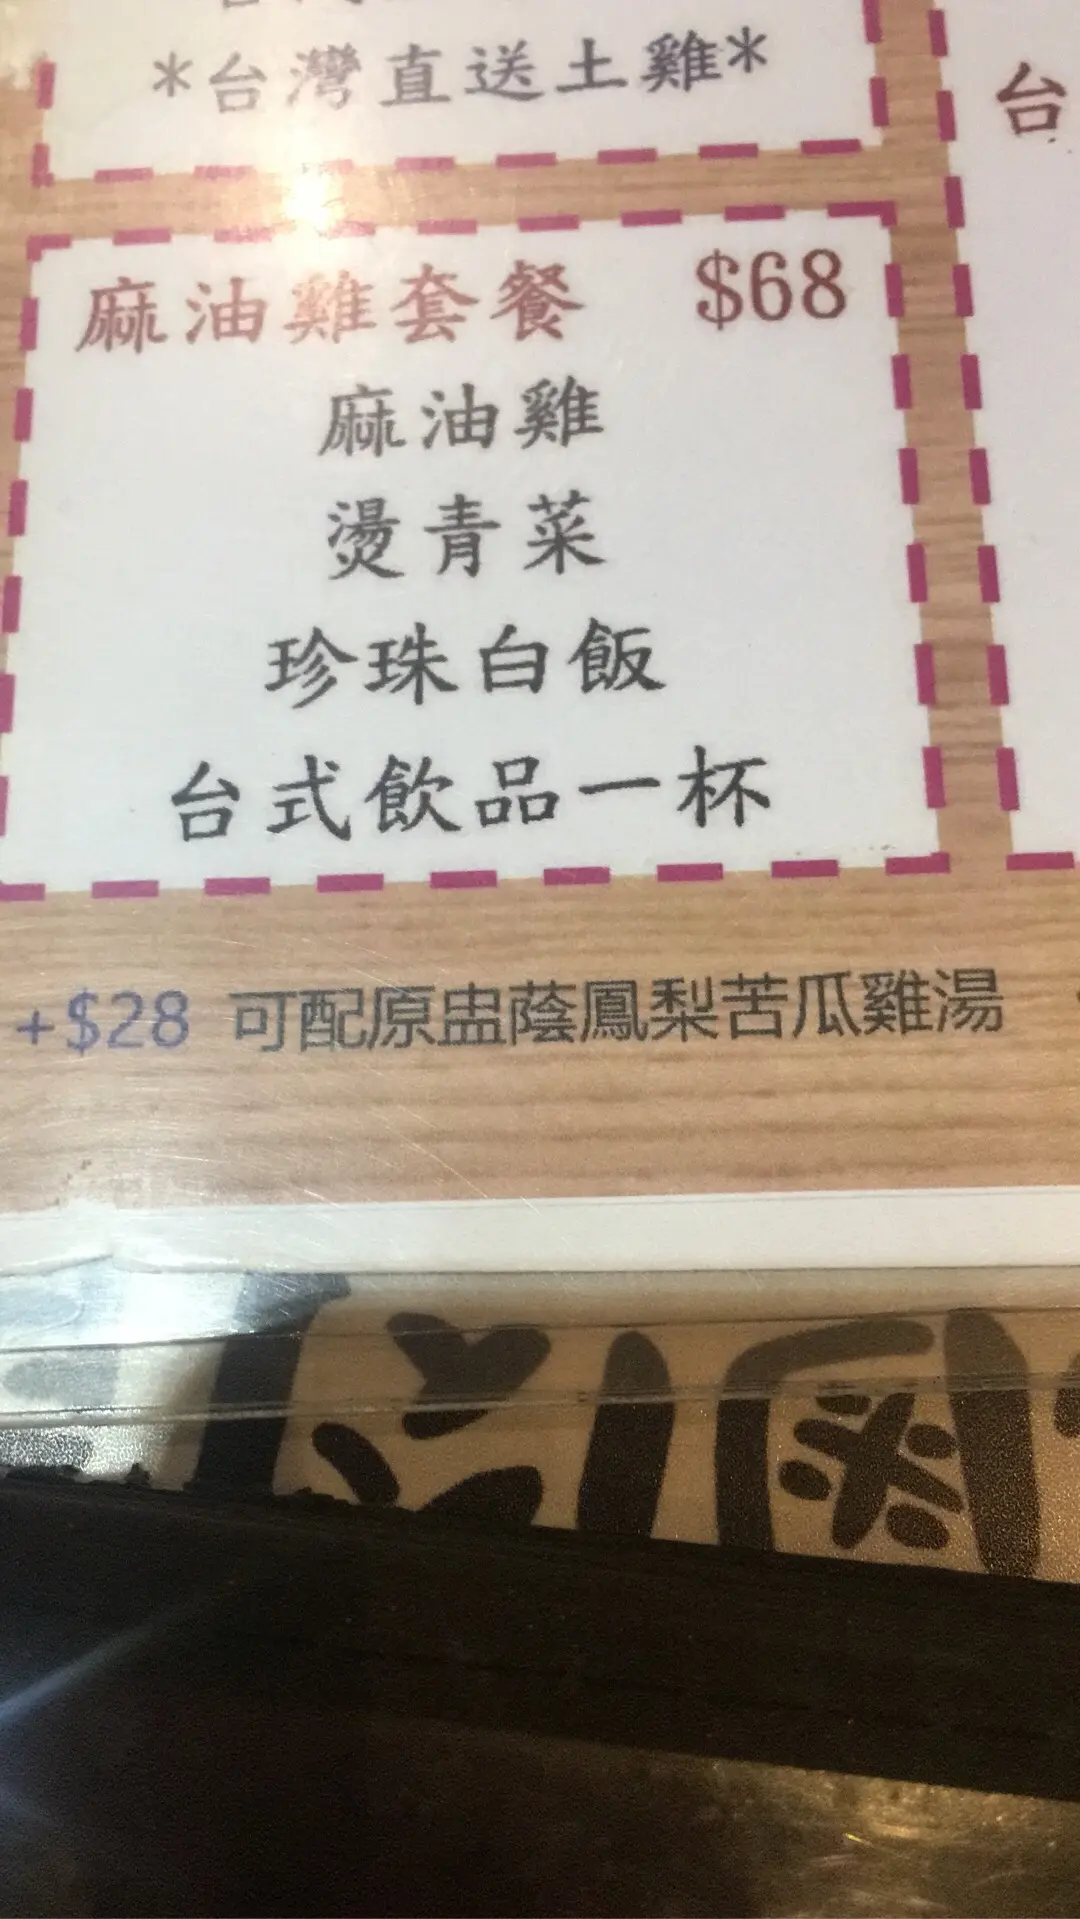 *台灣直送土雞*
台
麻油雞套餐 $68
麻油雞
燙青菜
珍珠白飯
台式飲品一杯
+$28 可配原盅蔭鳳梨苦瓜雞湯